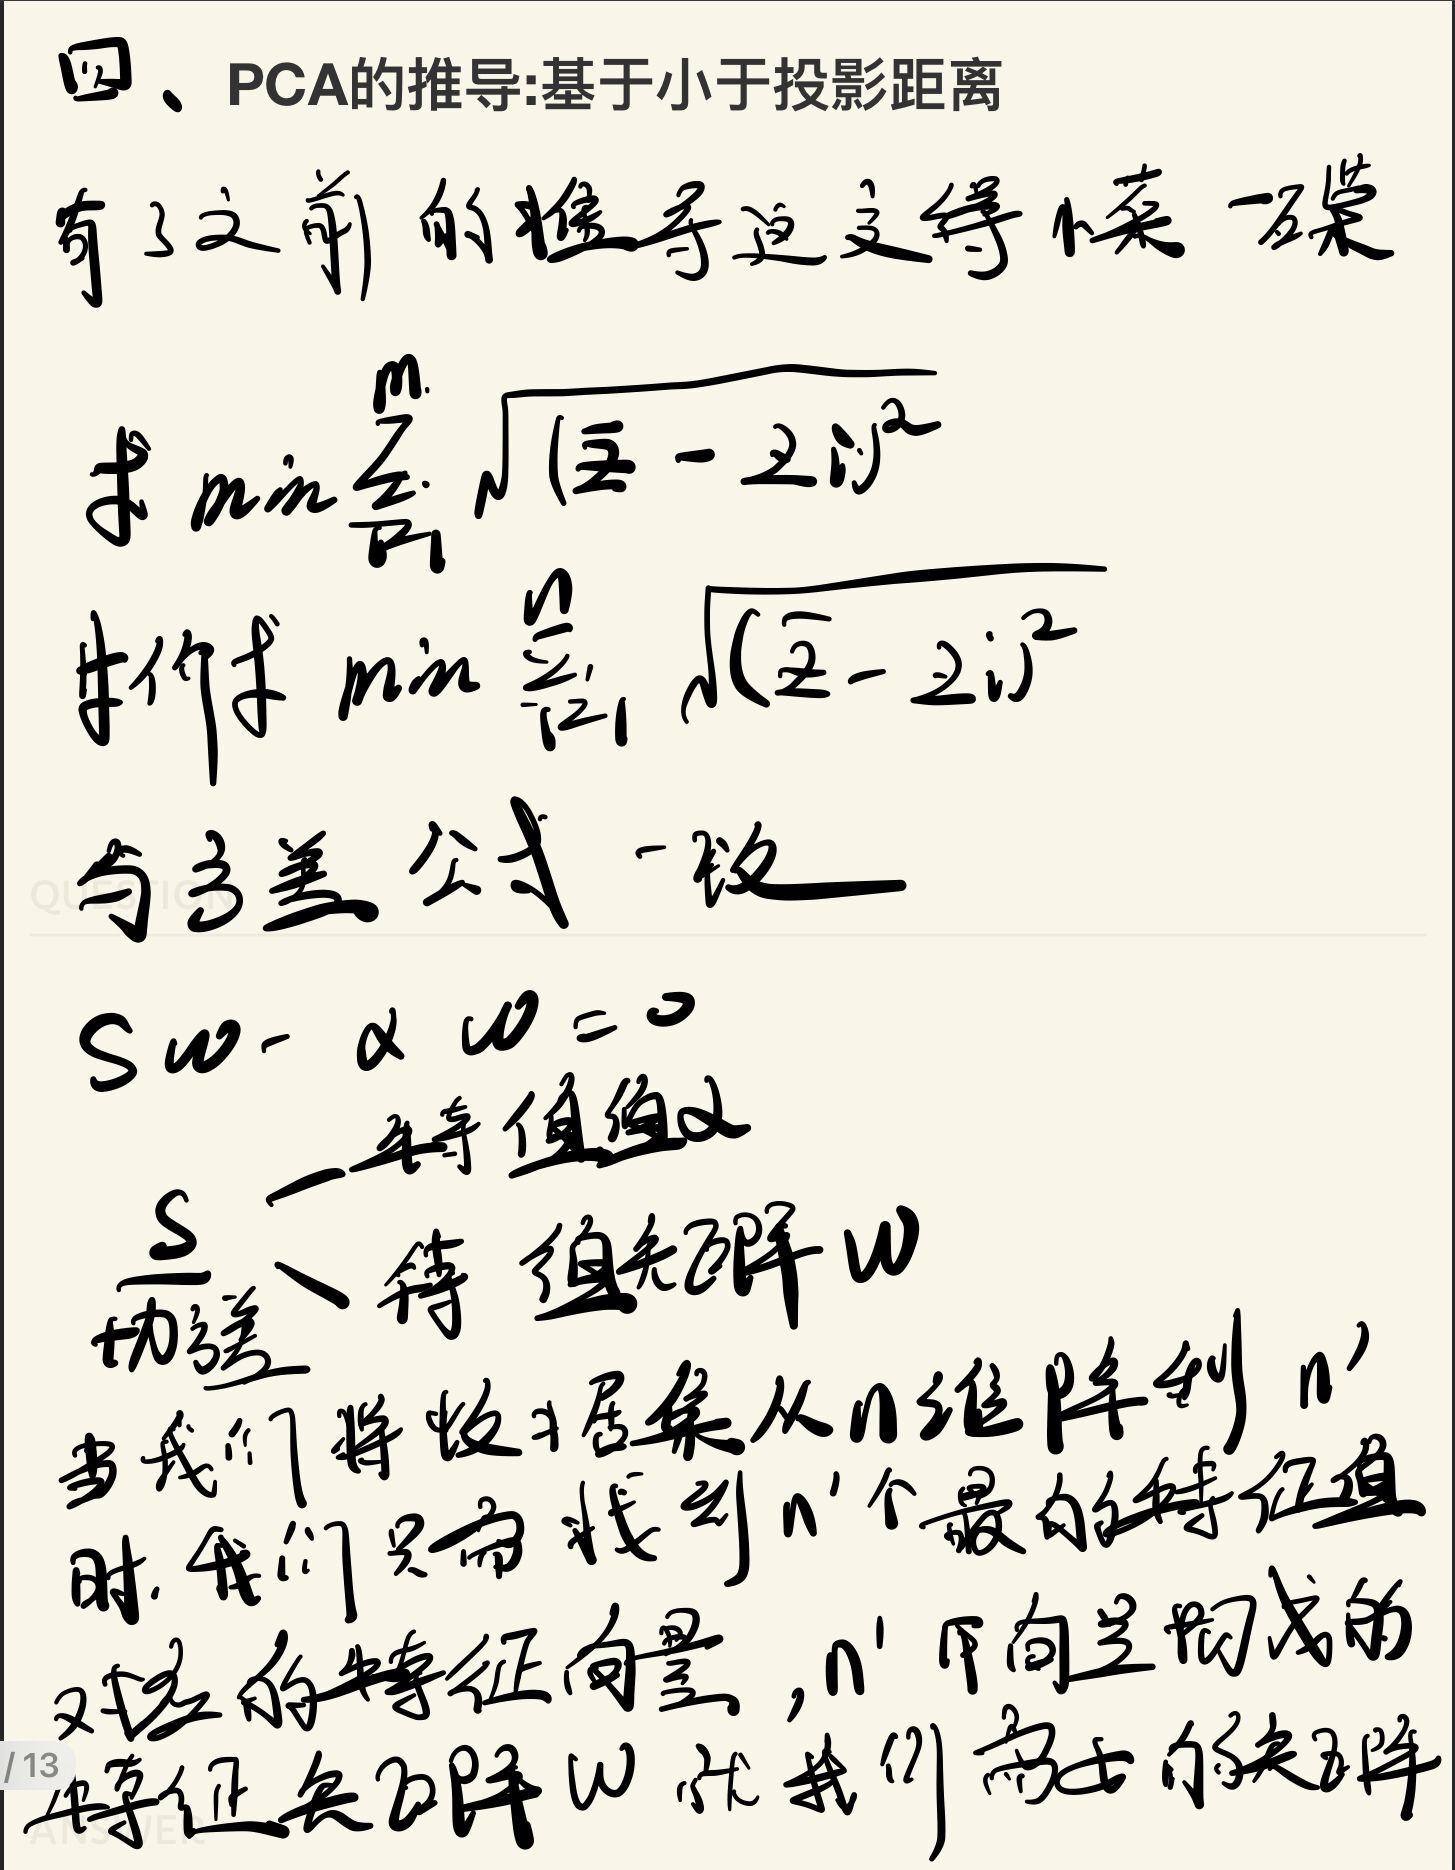 四、PCA的推导:基于小于投影距离
有了文前的推导这文得 一
求 min m Σ i=1 √(z̄ - zi)²
等价求 min n Σ i=1 √(z̄ - zi)²
与方差公式一致
QUESTION
Sw - αw = 0
特值值α
S 特值矩阵 W
协强
当我们将数据集从n维降到n'
时.我们只需找到n'个最的特征值
对应的特征向量,n'个向量构成的
特征矩阵W就我们需要的矩阵
/ 13
ANSWER